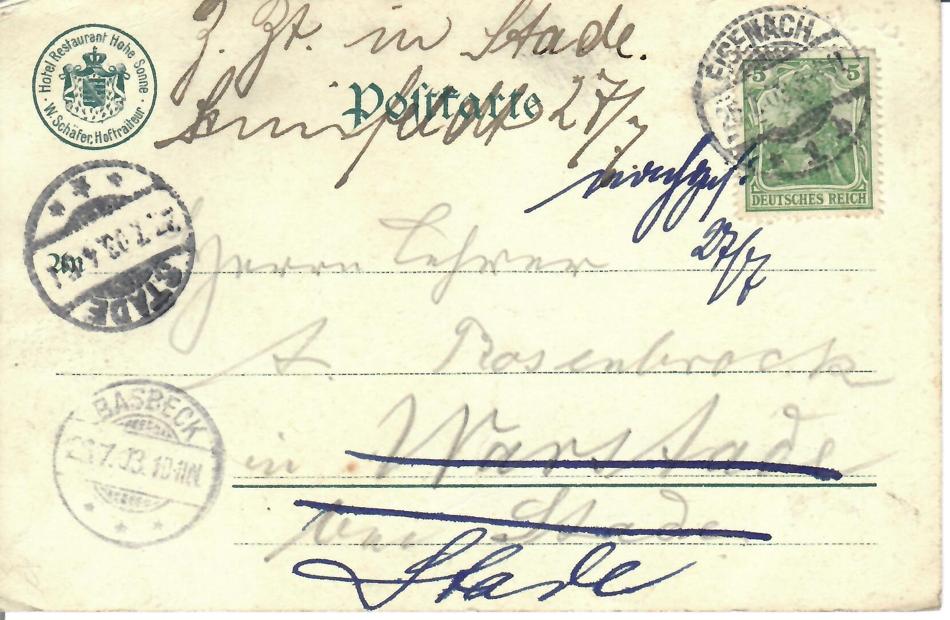 Hotel Restaurant Hohe Sonne
W. Schäfer, Hoftraiteur
Z. Zt. in Stade.
27/7
Postkarte
EISENACH
5 5
DEUTSCHES REICH
27/7
STADE
27.7.03.4
An
Herrn Lehrer
A. Rosenbrock
in Warstade
bei Stade
Stade
BASBECK
7.03.10-11N.